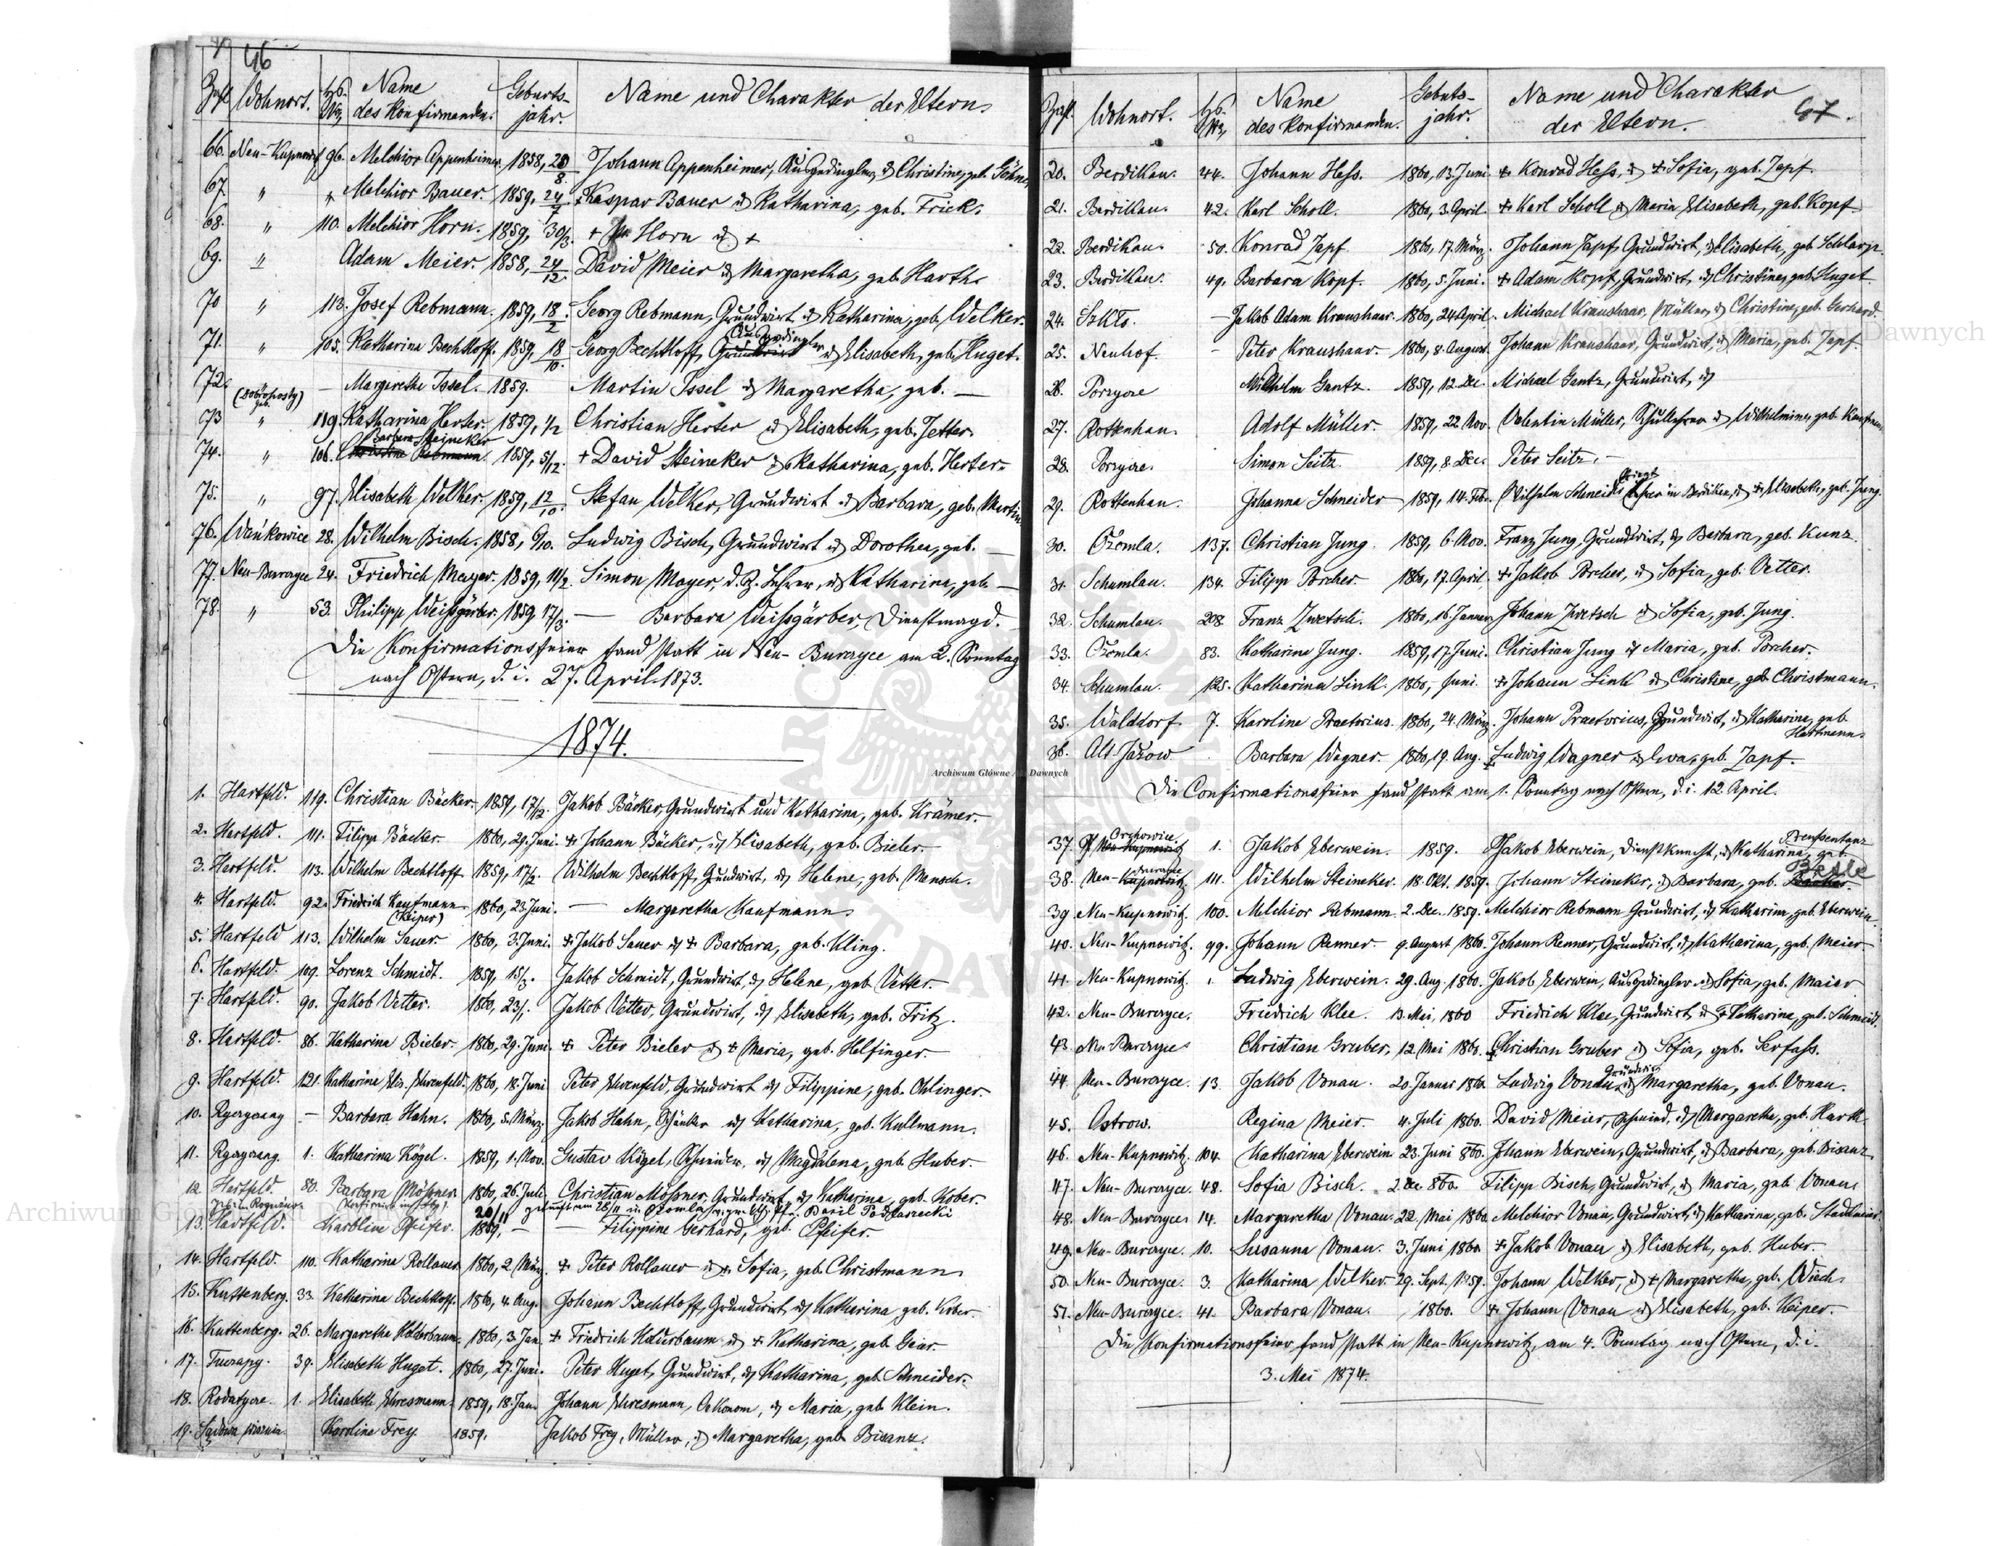 46
Zahl Wohnort. Hs. Nr. Name des Konfirmanden. Geburts-jahr. Name und Charakter der Eltern.
66. Neu-Kupnowitz 96. Melchior Appenheimer. 1858, 20/8 Johann Appenheimer, Ausgedingler, & Christine, geb.
67. " " Melchior Bauer. 1859, 24/7 + Kaspar Bauer & Katharina, geb. Frick.
68. " 110. Melchior Horn. 1859, 30/3. + Horn & +
69. " Adam Meier. 1858, 24/12. David Meier & Margaretha, geb. Harth.
70 " 113. Josef Rebmann. 1859, 18/2 Georg Rebmann, Grundwirt & Katharina, geb. Welker.
71. " 105. Katharina Bechtloff. 1859, 18/10. Georg Bechtloff, Ausgedingler & Elisabeth, geb. Huget.
72. (Dobrohosty) — Margarethe Issel. 1859. Martin Issel & Margaretha, geb. —
73 " 119. Katharina Herter. 1859, 1/2 Christian Herter & Elisabeth, geb. Jetter.
74. " 106. Barbara Steineker 1859, 5/12. + David Steineker & Katharina, geb. Herter.
75. " 97. Elisabeth Welker. 1859, 12/10. Stefan Welker, Grundwirt & Barbara, geb. Martin
76. Wańkowice 28. Wilhelm Bisch. 1858, 9/10. Ludwig Bisch, Grundwirt & Dorothea, geb. —
77. Neu-Burczyce 24. Friedrich Mayer. 1859, 11/2 Simon Mayer, d.Z. Lehrer, & Katharina, geb. —
78 " 53. Philipp Weissgärber. 1859 17/3. — Barbara Weissgärber, Dienstmagd. —
Die Konfirmationsfeier fand statt in Neu-Burczyce am 2. Sonntag
nach Ostern, d. i. 27. April 1873.
1874.
1. Hartfeld. 119. Christian Bäcker. 1859, 17/2. Jakob Bäcker, Grundwirt und Katharina, geb. Krämer.
2. Hartfeld. 111. Filipp Bäcker. 1860, 29. Juni. + Johann Bäcker, & Elisabeth, geb. Bieler.
3. Hartfeld. 113. Wilhelm Bechtloff. 1859, 17/2. Wilhelm Bechtloff, Grundwirt, & Helene, geb. Mensch.
4. Hartfeld. 92. Friedrich Kaufmann (Keiper) 1860, 23. Juni. — Margaretha Kaufmann
5. Hartfeld 113. Wilhelm Sauer 1860, 3. Juni. + Jakob Sauer & + Barbara, geb. Kling.
6. Hartfeld. 109. Lorenz Schmidt. 1859, 15/3. Jakob Schmidt, Grundwirt, & Helene, geb. Vetter.
7. Hartfeld. 90. Jakob Vetter. 1860, 23/1. Jakob Vetter, Grundwirt, & Elisabeth, geb. Fritz.
8. Hartfeld. 86. Katharina Bieler. 1860, 29. Juni. + Peter Bieler & + Maria, geb. Helfinger.
9. Hartfeld. 121. Katharina Elis. Ehrenfeld. 1860, 18. Juni Peter Ehrenfeld, Grundwirt & Filippine, geb. Ohlinger.
10. — Barbara Hahn. 1860, 5. März. Jakob Hahn, Schänker & Katharina, geb. Kullmann.
11. 1. Katharina Kögel. 1859, 1. Nov. Gustav Kögel, Schneider, & Magdalena, geb. Huber.
12 Hartfeld. 80. Barbara Mössner. 1860, 26. Juli. Christian Mössner, Grundwirt & Katharina, geb. Kober.
13. Hartfeld. Karoline Pfeifer. 20/11 1860, — Filippine Gerhard, geb. Pfeifer.
14. Hartfeld. 110. Katharina Rollauer 1860, 2. März. + Peter Rollauer & + Sofia, geb. Christmann
15. Kuttenberg. 33. Katharina Bechtloff. 1860, 4. Aug. Johann Bechtloff, Grundwirt & Katharina, geb. Kober.
16. Kuttenberg. 26. Margaretha Holderbaum. 1860, 3. Jan. + Friedrich Holderbaum & + Katharina, geb. Geier.
17. 39. Elisabeth Huget. 1860, 27. Juni. Peter Huget, Grundwirt, & Katharina, geb. Schneider.
18. Rodatycze. 1. Elisabeth Ehresmann. 1859, 18. Jan. Johann Ehresmann, Oekonom, & Maria, geb. Klein.
19. Sądowa Karoline Frey. 1859. Jakob Frey, Müller, & Margaretha, geb. Bisanz.
47.
Zahl. Wohnort. Hs. Nr. Name des Konfirmanden. Geburts-jahr. Name und Charakter der Eltern.
20. Berdikau. 44. Johann Hess. 1860, 13. Juni + Konrad Hess, & + Sofia, geb. Zapf.
21. Berdikau. 42. Karl Scholl. 1860, 3. April + Karl Scholl & Maria Elisabeth, geb. Kopf.
22. Berdikau. 50. Konrad Zapf. 1860, 17. März. Johann Zapf, Grundwirt, & Elisabeth, geb.
23. Berdikau. 49. Barbara Kopf. 1860, 5. Juni. + Adam Kopf, Grundwirt, & Christine, geb. Huget.
24. Szkło. — Jakob Adam Kraushaar. 1860, 24. April. Michael Kraushaar, Müller, & Christine, geb. Gerhard.
25. Neuhof. — Peter Kraushaar. 1860, 8. August. Johann Kraushaar, Grundwirt, & Maria, geb. Zapf.
26. Porzycze Wilhelm Gantz. 1859, 12. Dec. Michael Gantz, Grundwirt, &
27. Rottenhan. Adolf Müller. 1859, 22. Nov. Valentin Müller, Schullehrer & Wilhelmine, geb. Kaufmann.
28. Porzycze. Simon Seitz. 1859, 8. Dec. Peter Seitz, —
29. Rottenhan. Johanna Schneider 1859, 14. Feb. Wilhelm Schneider, in Berdikau, & + Elisabeth, geb. Jung.
30. Czomla. 137. Christian Jung 1859, 6. Nov. Franz Jung, Grundwirt, & Barbara, geb. Kunz.
31. Schumlau. 134. Filipp Porcher. 1860, 17. April. + Jakob Porcher, & Sofia, geb. Vetter.
32. Schumlau. 208. Franz Zwetsch. 1860, 16. Januar. Johann Zwetsch & Sofia, geb. Jung.
33. Czomla. 83. Katharina Jung. 1859, 17. Juni. Christian Jung & Maria, geb. Porcher.
34. Schumlau. 125. Katharina Link. 1860, — Juni. + Johann Link & Christine, geb. Christmann.
35. Walddorf 7. Karoline Praetorius. 1860, 24. März. Johann Praetorius, Grundwirt, & Katharina, geb. Hartmann.
36. Alt Jażow Barbara Wagner. 1860, 19. Aug. + Ludwig Wagner & Eva, geb. Zapf.
Die Confirmationsfeier fand statt am 1. Sonntag nach Ostern, d. i. 12. April.
37. Orchowice 1. Jakob Eberwein. 1859. Jakob Eberwein, Dienstknecht, & Katharina, geb.
38. Neu-Burczyce 111. Wilhelm Steineker. 18. Okt. 1859. Johann Steineker, & Barbara, geb.
39 Neu-Kupnowitz. 100. Melchior Rebmann. 2. Dec. 1859. Melchior Rebmann, Grundwirt, & Katharina, geb. Eberwein.
40. Neu-Kupnowitz. 99. Johann Renner 9. August 1860. Johann Renner, Grundwirt, & Katharina, geb. Meier.
41. Neu-Kupnowitz. 1. Ludwig Eberwein. 29. Aug. 1860. Jakob Eberwein, Ausgedingler & Sofia, geb. Maier
42. Neu-Burczyce. Friedrich Klee. 13. Mai, 1860 Friedrich Klee, Grundwirt & + Katharina, geb. Schmidt.
43. Neu-Burczyce Christian Gruber, 12. Mai 1860. + Christian Gruber & Sofia, geb. Serfass.
44. Neu-Burczyce. 13. Jakob Vonau. 20. Januar 1860. Ludwig Vonau, Grundwirt & Margaretha, geb. Vonau.
45. Ostrow. Regina Meier. 4. Juli 1860. David Meier, Schmied, & Margaretha, geb. Harth.
46. Neu-Kupnowitz. 104. Katharina Eberwein 23. Juni 860. Johann Eberwein, Grundwirt, & Barbara, geb. Bisanz
47. Neu-Burczyce. 48. Sofia Bisch. 2. Dec. 860. Filipp Bisch, Grundwirt, & Maria, geb. Vonau
48. Neu-Burczyce. 14. Margaretha Vonau. 22. Mai 1860. Melchior Vonau, Grundwirt, & Katharina, geb.
49. Neu-Burczyce. 10. Susanna Vonau. 3. Juni 1860. + Jakob Vonau & Elisabeth, geb. Huber.
50. Neu-Burczyce. 3. Katharina Welker. 29. Sept. 1859. Johann Welker, & + Margaretha, geb.
51. Neu-Burczyce. 41. Barbara Vonau. 1860. + Johann Vonau & Elisabeth, geb. Keiper.
Die Konfirmationsfeier fand statt in Neu-Kupnowitz, am 4. Sonntag nach Ostern, d. i.
3. Mai 1874.
Archiwum Główne Akt Dawnych